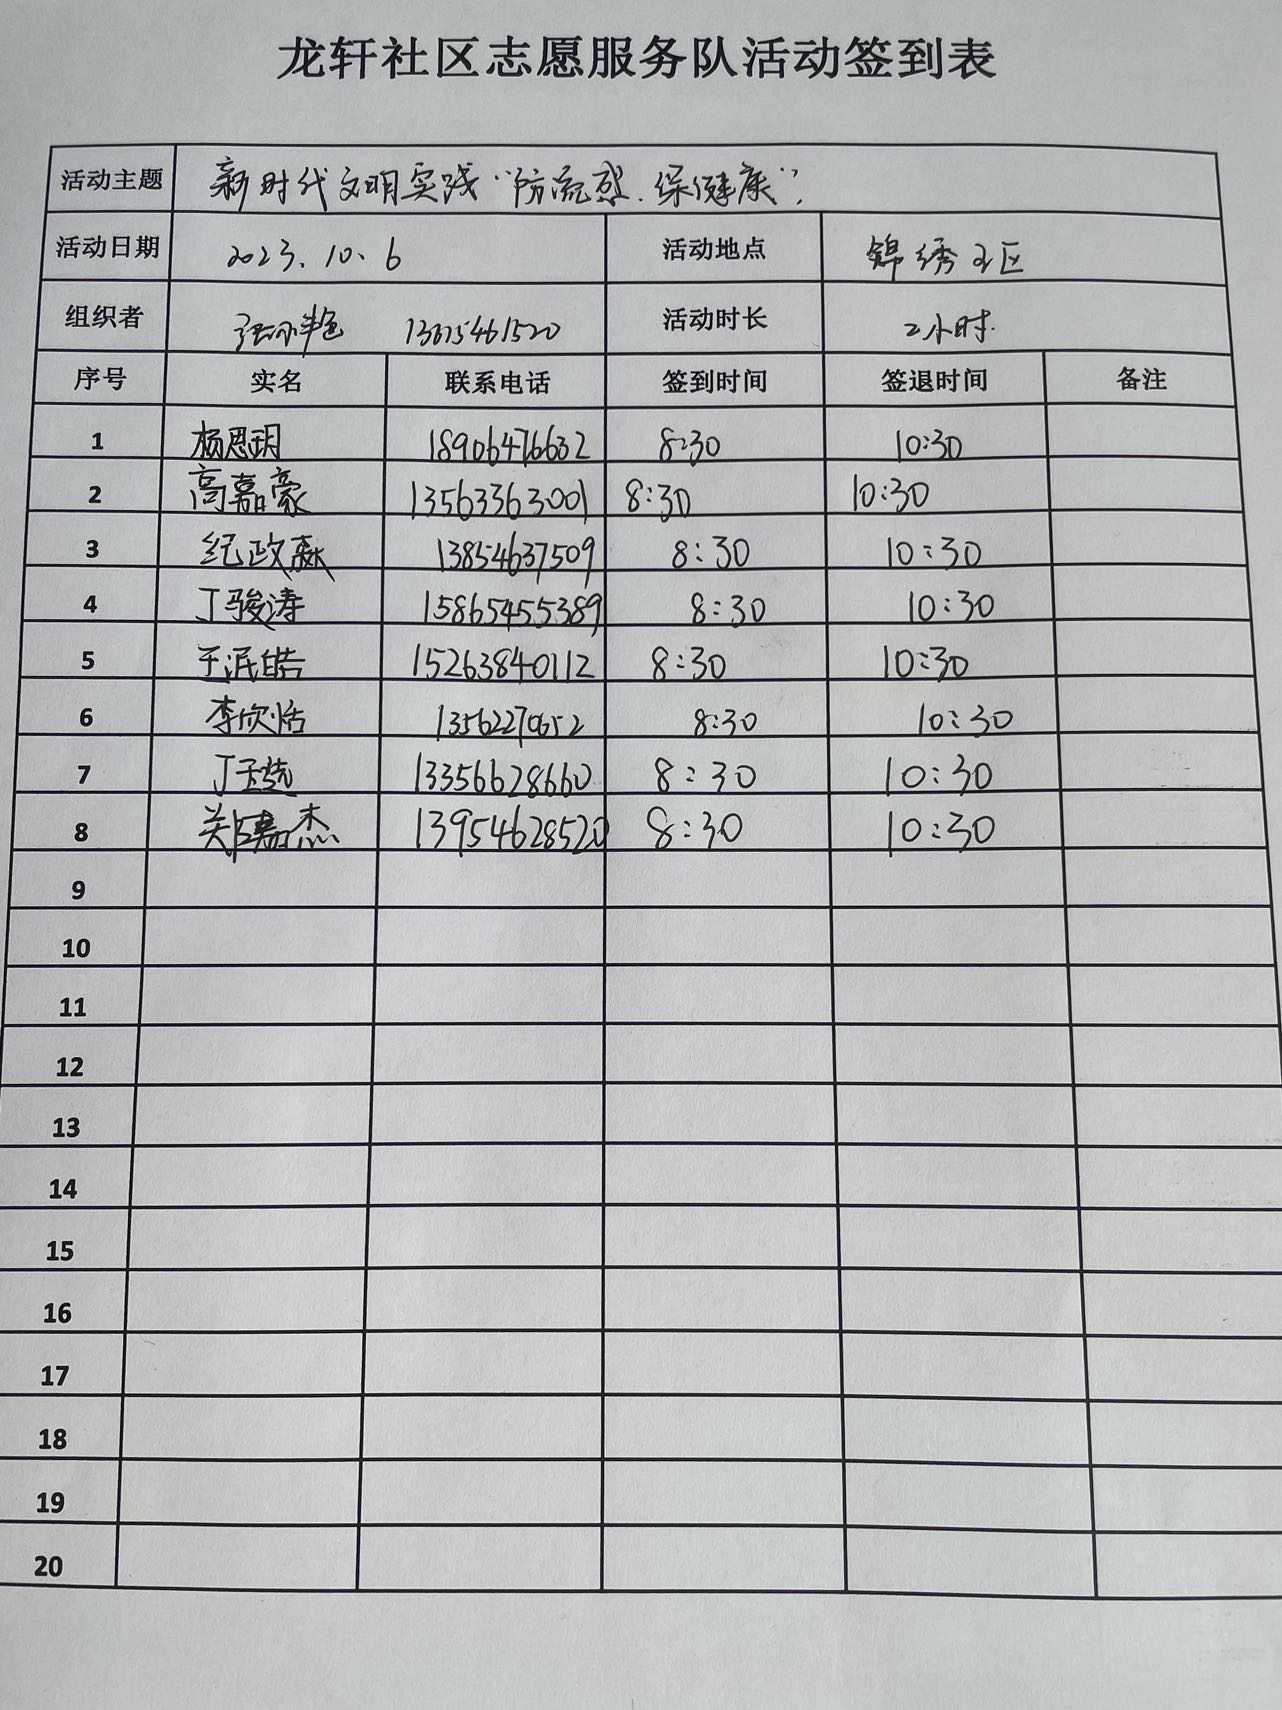 龙轩社区志愿服务队活动签到表
活动主题 新时代文明实践“防流感.保健康”,
活动日期 2023.10.6 活动地点 锦绣社区
组织者 13615461520 活动时长 2小时.
序号 实名 联系电话 签到时间 签退时间 备注
1 杨恩玥 18906476632 8:30 10:30
2 高嘉豪 13563363001 8:30 10:30
3 纪政霖 13854637509 8:30 10:30
4 丁骏涛 15865455389 8:30 10:30
5 王泯皓 15263840112 8:30 10:30
6 李欣恬 13562270652 8:30 10:30
7 丁 13356628660 8:30 10:30
8 关 杰 13954628520 8:30 10:30
9
10
11
12
13
14
15
16
17
18
19
20